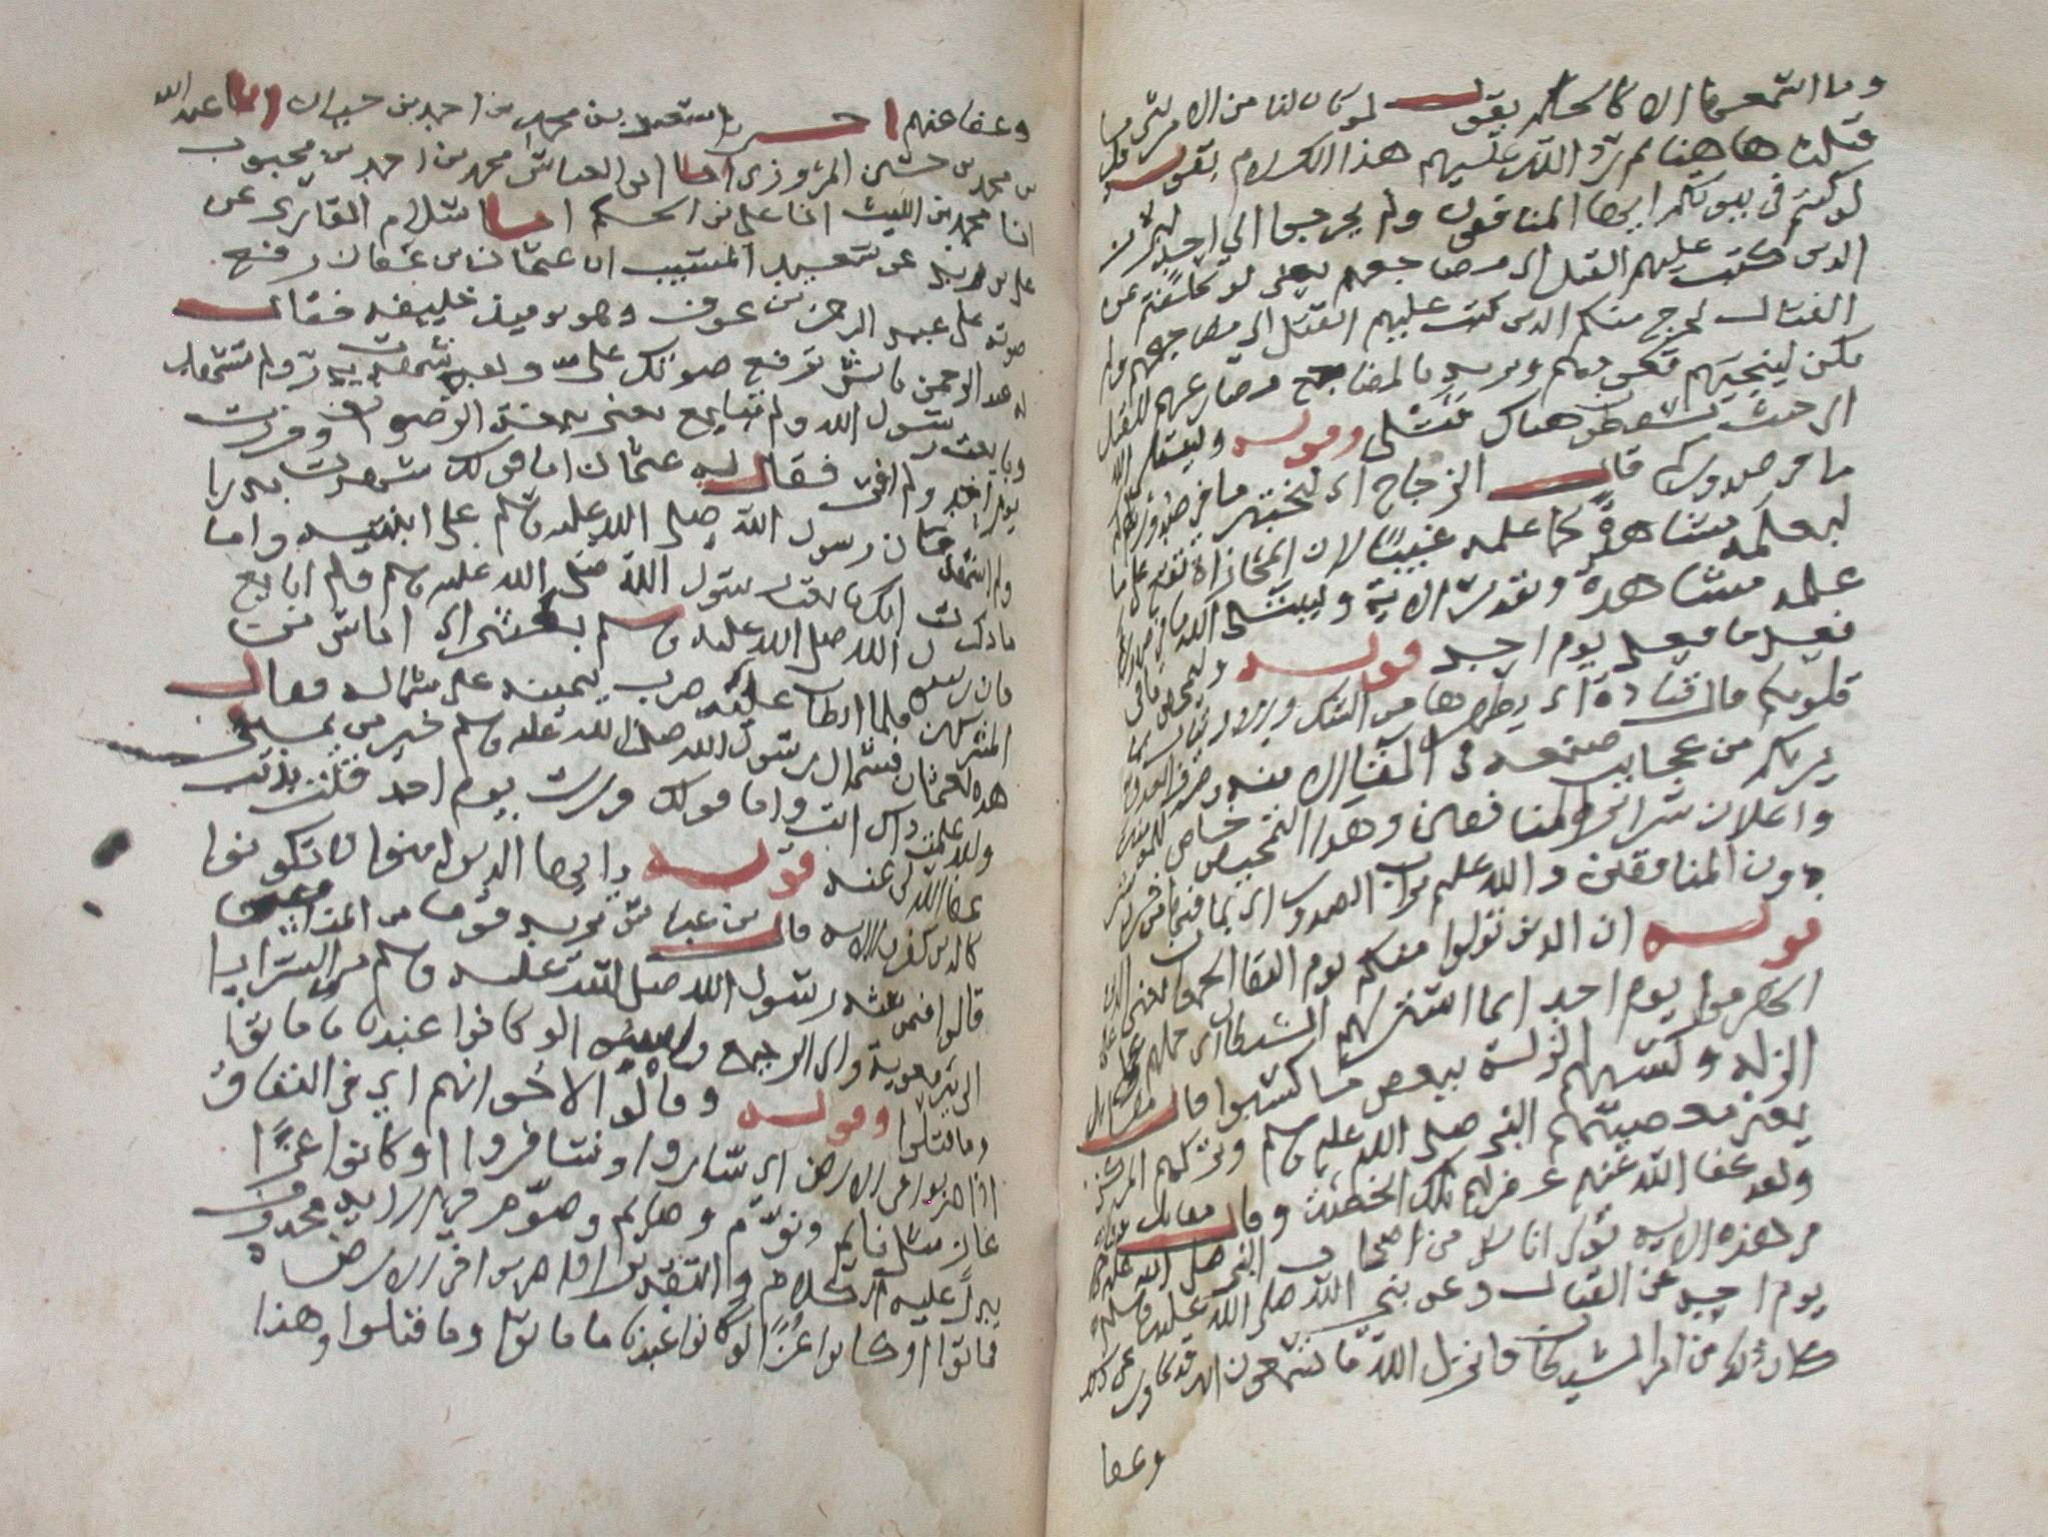 وما اسمعها الا كالحلم يقول لو كان لنا من الامر شي ما
قتلنا هاهنا ثم رد الله عليهم هذا الكلام بقوله قل
لو كنتم في بيوتكم ايها المنافقون ولم يخرجوا الي احد لبرز
الذين كتب عليهم القتل الى مضاجعهم يعني لو تخلفتم عن
القتال لخرج منكم الذين كتب عليهم القتل الى مضاجعهم ولم
يكن لينجيهم قعودهم ويريد بالمضاجع مصارعهم للقتل
اي حيث يسقطون هناك قتلى وقوله وليبتلى الله
ما في صدوركم قال الزجاج اي ليختبر ما في صدوركم
ليعلمه مشاهدة كما علمه غيبا لان المجازاة تقع على ما
علمه مشاهدة وتقدير الاية وليبتلى الله ما في صدوركم
فعل ما فعل يوم احد قوله وليمحص ما في
قلوبكم قال قتادة اي يطهرها من الشك والارتياب بما
يريكم من عجايب صنعه في
واعلان سراير المنافقين وهذا التمحيص خاص للمومنين
دون المنافقين والله عليم بذات الصدور اي بما فيها
قوله ان الذين تولوا منكم يوم التقا الجمعان يعني الذين
انهزموا يوم احد انما استزلهم الشيطان اي حملهم على
الزله وكسبهم الزلة ببعض ما كسبوا قال
يعني معصيتهم النبي صلى الله عليه وسلم وتركهم المركز
ولقد عفا الله عنهم غفر لهم تلك الخطيئة وقال
في هذه الاية تولى اناس من اصحاب النبي صلى الله عليه وسلم
يوم احد عن القتال وعن نبي الله صلى الله عليه وسلم
كان ذلك من امر الشيطان فانزل الله ما تسمعون انه قد تجاوز عن ذلك
وعفا
وعفا عنهم اخبرنا سعيد بن محمد بن احمد بن حمدان انا عبد الله
بن محمد بن حسين المروزي انا ابو العباس محمد بن احمد بن محبوب
انا محمد بن الليث انا علي بن الحكم انا سلام القاري عن
علي بن زيد عن سعيد المسيب ان عثمان بن عفان رفع
صوته على عبد الرحمن بن عوف وهو يوميذ خليفه فقال
له عبد الرحمن بايش ترفع صوتك علي ولقد شهدت بدرا ولم تشهد
وبايعت رسول الله ولم تبايع يعني بيعة الرضوان وفررت
يوم احد ولم افر فقال له عثمان اما قولك شهدت بدرا
ولم اشهد فان رسول الله صلى الله عليه وسلم على ابنتيه واما
ما ذكرت انك بايعت رسول الله صلى الله عليه وسلم ولم ابايع
فان رسول الله صلى الله عليه وسلم بعثني الى اناس من
المشركين فلما ابطات عليه ضرب يمينه على شماله فقال
هذه لعثمان فشمال رسول الله صلى الله عليه وسلم خير من يميني
ولقد علمت ذاك انت واما قولك فررت يوم احد
عفا الله لي عنه قوله يا ايها الذين امنوا لا تكونوا
كالذين كفروا الاية قال بن عباس يريد قوما من المنافقين
قالوا فيمن بعثه رسول الله صلى الله عليه وسلم من السرايا
الى بير معوية والى الرجيع لو كانوا عندنا ما ماتوا
وما قتلوا وقوله وقالوا لاخوانهم اي في النفاق
اذا ضربوا في الارض اي ساروا وسافروا او كانوا غزا
غاز مثل نايم ونوم وصايم وصوم وفي الاية محذوف
يدل عليه الكلام والتقدير اذا ضربوا في الارض
فماتوا او كانوا غزا لو كانوا عندنا ما ماتوا وما قتلوا وهذا